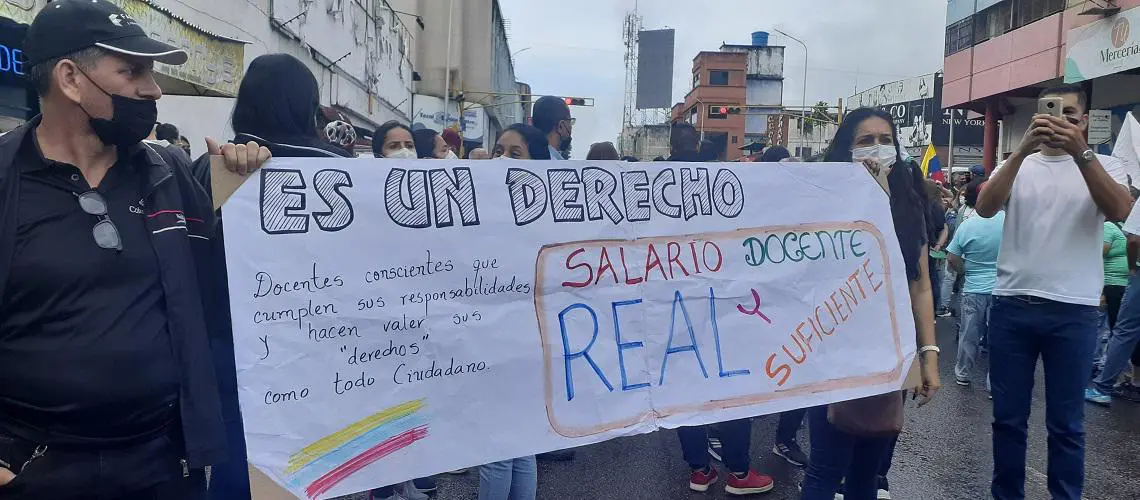 ES UN DERECHO
Docentes conscientes que
cumplen sus responsabilidades
y hacen valer sus
"derechos"
como todo Ciudadano.
SALARIO DOCENTE
REAL Y
SUFICIENTE
Mercería
NEW YORK